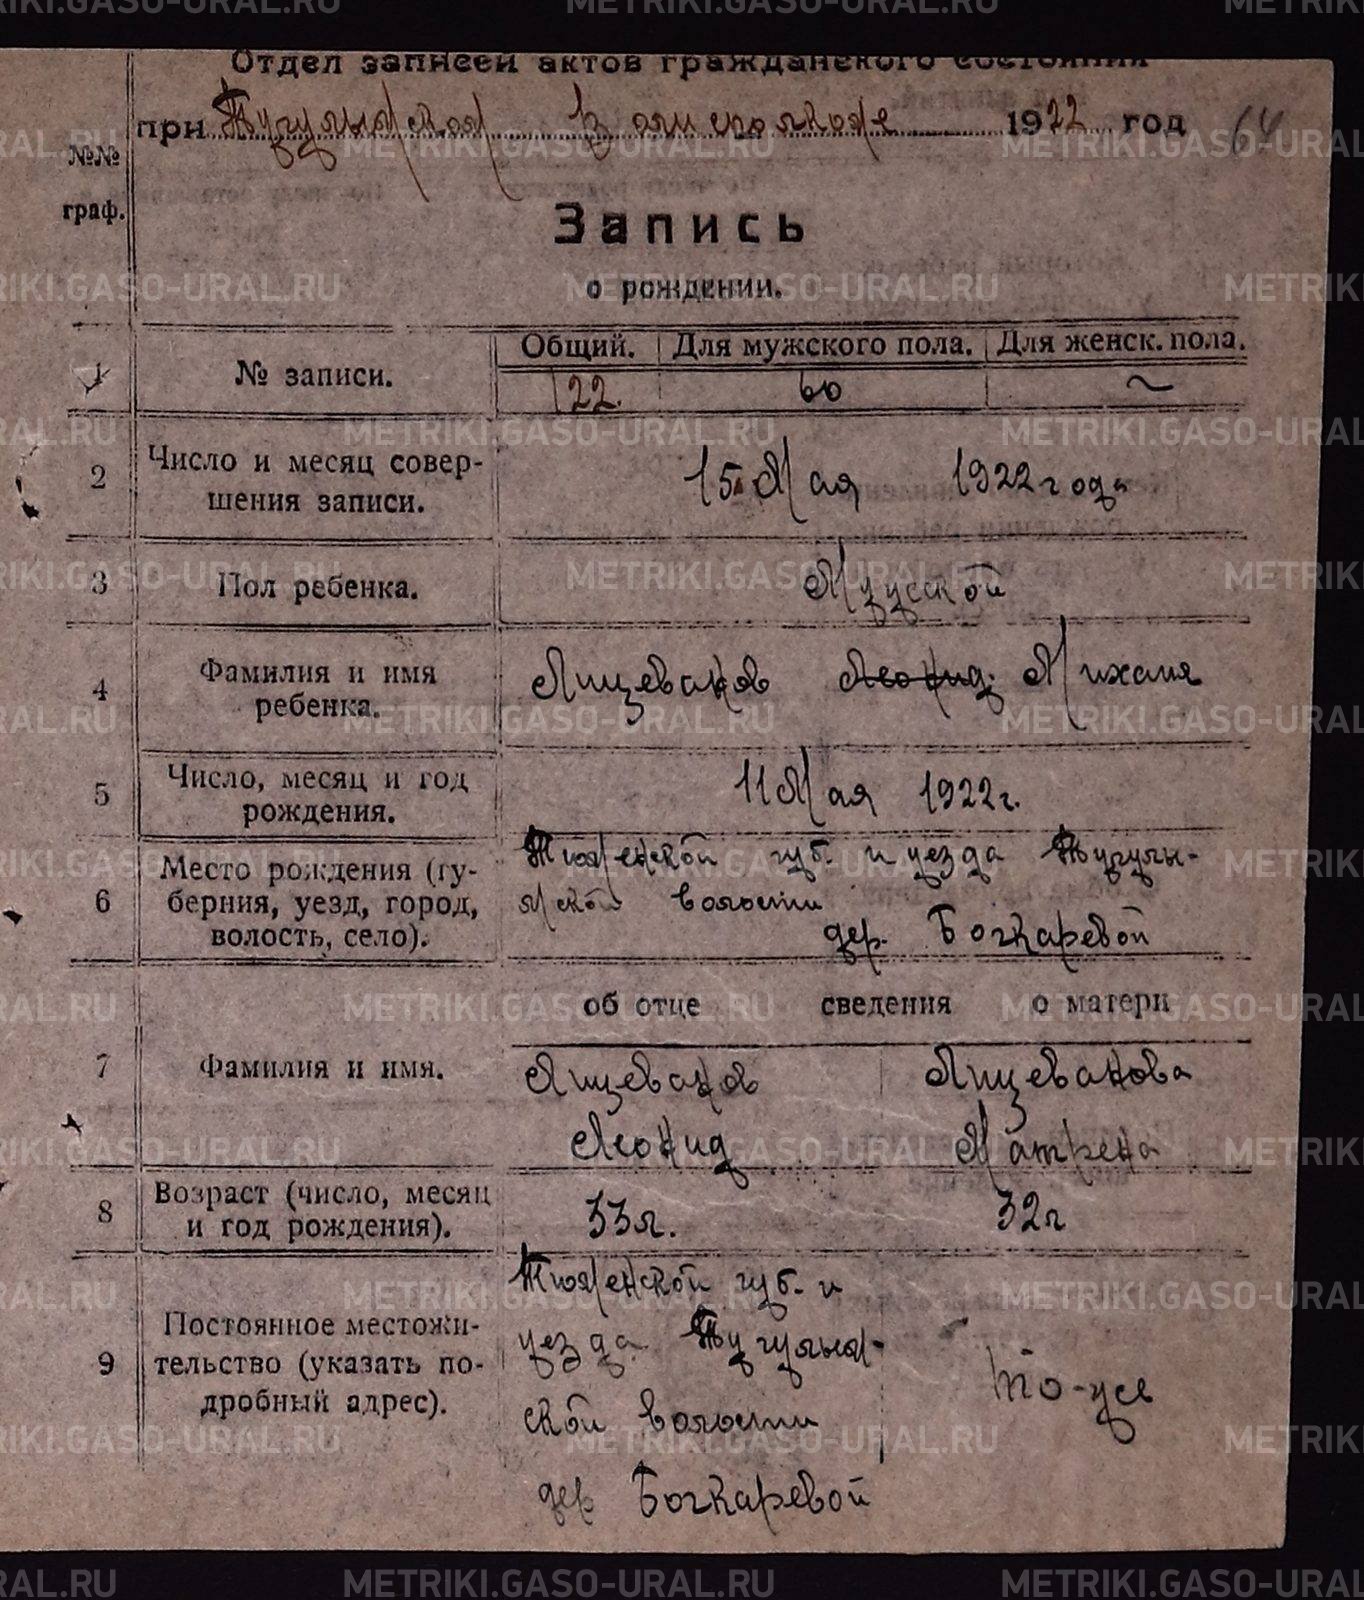 Отдел записей актов гражданского состояния
при Тугулымском Волисполкоме 1922 год 64
№№ граф.
Запись
о рождении.
Общий. Для мужского пола. Для женск. пола.
1 № записи. 122. 60 ~
2 Число и месяц совер-
шения записи.
15 Мая 1922 года
3 Пол ребенка. Мужской
4 Фамилия и имя
ребенка.
Лицеванов Леонид. Михаил
5 Число, месяц и год
рождения.
11 Мая 1922г.
6 Место рождения (гу-
берния, уезд, город,
волость, село).
Тюменской губ. и уезда Тугулы-
мской волости
дер. Бочкаревой
об отце сведения о матери
7 Фамилия и имя.
Лицеванов Лицеванова
Леонид Матрена
8 Возраст (число, месяц
и год рождения).
33л. 32г
9 Постоянное местожи-
тельство (указать по-
дробный адрес).
Тюменской губ. и
уезда Тугулым-
ской волости
дер Бочкаревой
то-же
METRIKI.GASO-URAL.RU